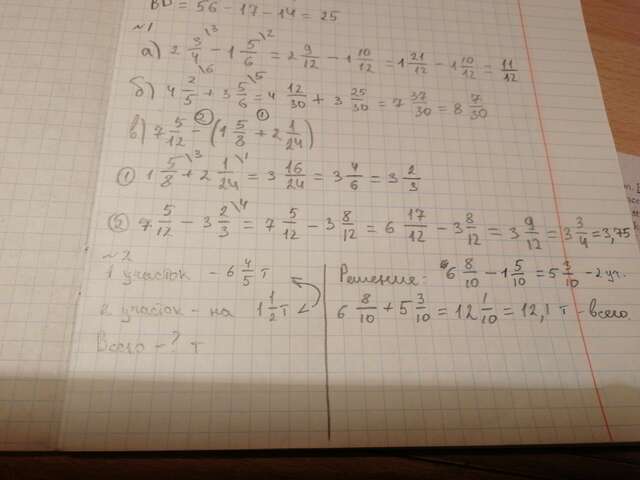 BD = 56 - 17 - 14 = 25
~1
а) 2 3/4 \3 - 1 5/6 \2 = 2 9/12 - 1 10/12 = 1 21/12 - 1 10/12 = 11/12
б) 4 2/5 \6 + 3 5/6 \5 = 4 12/30 + 3 25/30 = 7 37/30 = 8 7/30
в) 7 5/12 - (1 5/8 + 2 1/24)
① 1 5/8 \3 + 2 1/24 \1 = 3 16/24 = 3 4/6 = 3 2/3
② 7 5/12 - 3 2/3 \4 = 7 5/12 - 3 8/12 = 6 17/12 - 3 8/12 = 3 9/12 = 3 3/4 = 3,75
~2
1 участок - 6 4/5 т
2 участок - на 1 1/2 т <
Всего - ? т
Решение: 6 8/10 - 1 5/10 = 5 3/10 - 2 уч.
6 8/10 + 5 3/10 = 12 1/10 = 12,1 т - всего.